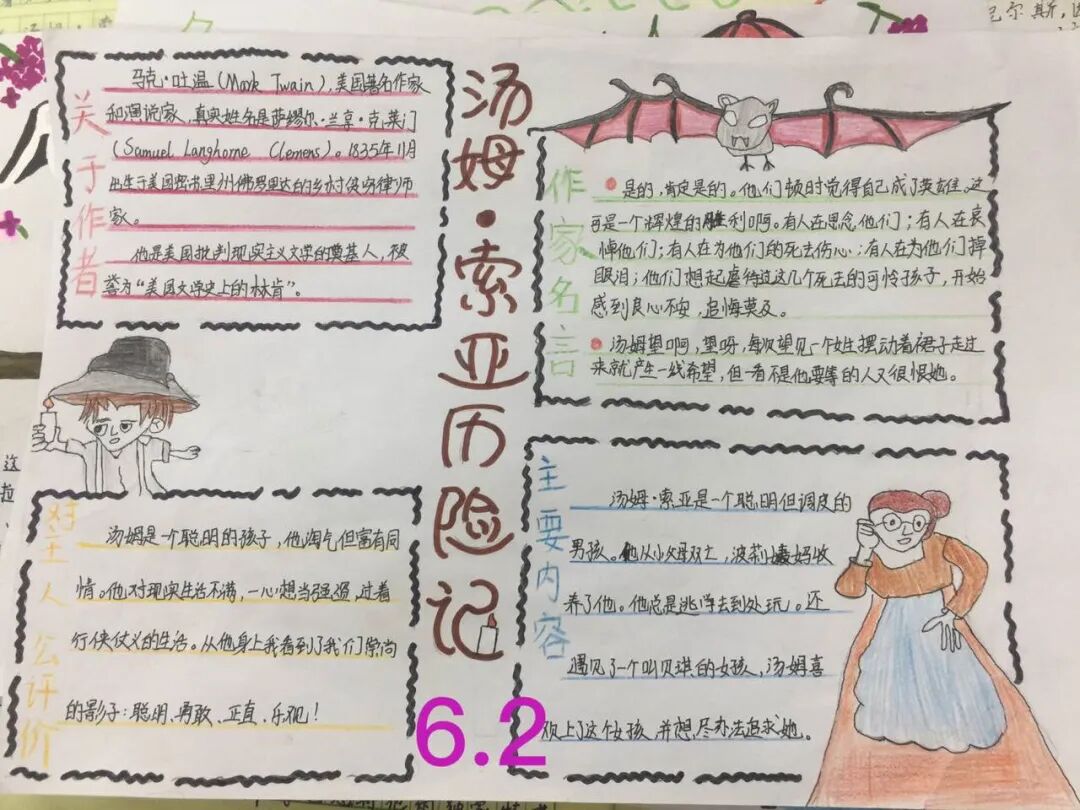 汤姆·索亚历险记
关于作者
马克·吐温(Mark Twain),美国著名作家
和演说家,真实姓名是萨缪尔·兰亨·克莱门
(Samuel Langhorne Clemens)。1835年11月
出生于美国密苏里州佛罗里达的乡村贫穷律师
家。
他是美国批判现实主义文学的奠基人,被
誉为“美国文学史上的林肯”。
作家名言
是的,肯定是的。他们顿时觉得自己成了英雄。这
可是一个辉煌的胜利啊。有人在思念他们;有人在哀
悼他们;有人在为他们的死去伤心;有人在为他们掉
眼泪;他们想起虐待过这几个死去的可怜孩子,开始
感到良心不安,追悔莫及。
汤姆望啊,望呀,每次望见一个女生摆动着裙子走过
来就产生一线希望,但一看不是他要等的人又很恨她。
对主人公评价
汤姆是一个聪明的孩子,他淘气但富有同
情。他对现实生活不满,一心想当强盗,过着
行侠仗义的生活。从他身上我看到了我们崇尚
的影子:聪明、勇敢、正直、乐观!
主要内容
汤姆·索亚是一个聪明但调皮的
男孩。他从小父母双亡,波莉姨妈收
养了他。他总是逃学去到处玩。还
遇见了一个叫贝琪的女孩,汤姆喜
欢上了这个女孩,并想尽办法追求她。
6.2
巴尔斯,因
这
拉